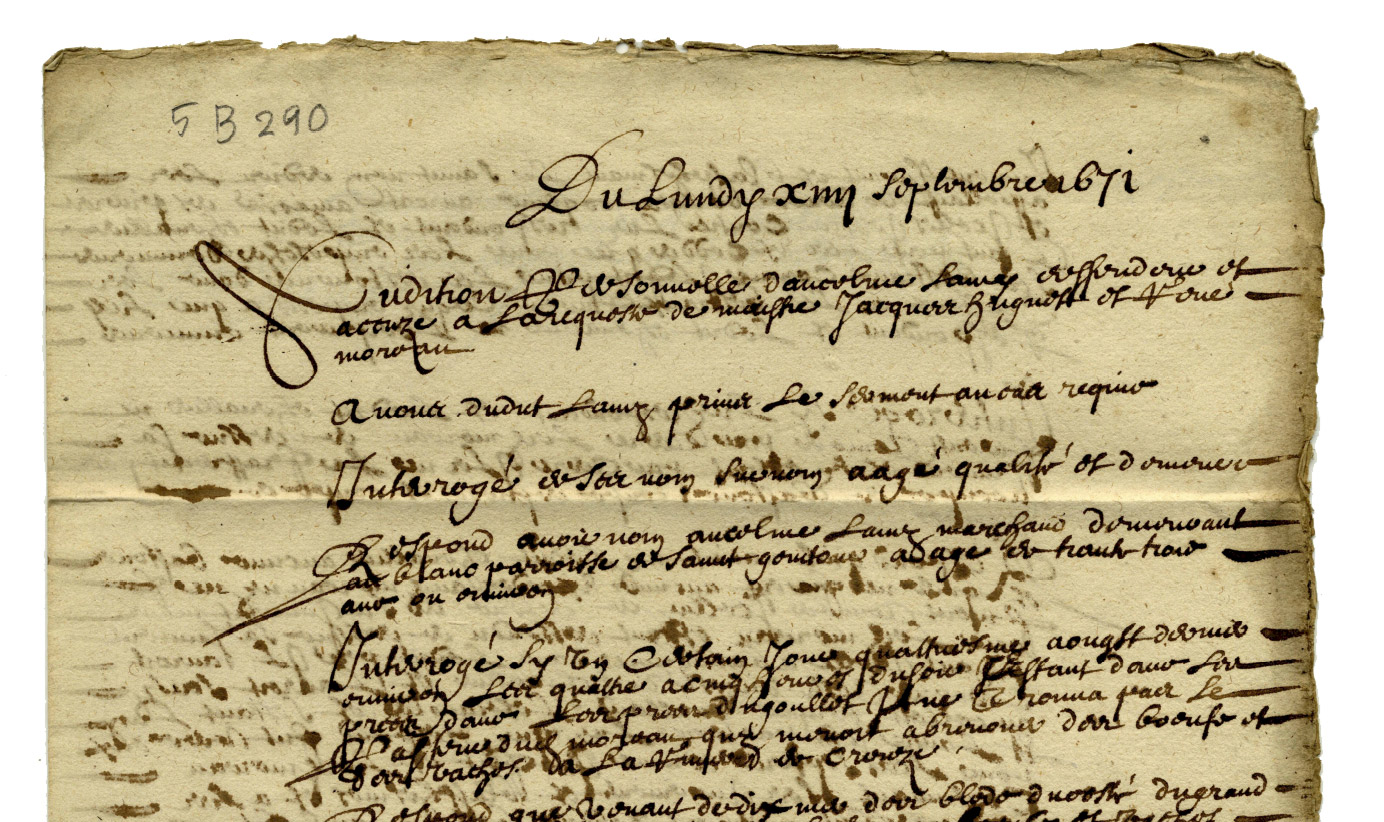 5 B 290
Du Lundy xiiii septembre 1671
Audition personnelle d'ancelme Lamy deffendeur et
accuze a La requeste de maistre Jacques huguet et René
moreau
Avons dudit Lamy prins Le serment au cas requis
Interrogé de ses nom surnom aagé qualité et demeure
Respond avoir nom ancelme Lamy marchand demeurant
au blanc parroisse de Sainct genitour aagé de trante trois
ans ou environ
Interrogé sy un Certain Jour quattriesme aougst dernier
environ Les quattre a cinq heures du soir estant dans Les
dans Les prees du goullet Il ne trouva pas Le
dud moreau quy menoit abreuver des boeufs et
des vaches a La Riviere de Creuze
Respond que venant de dixmer des bleds du costé du grand